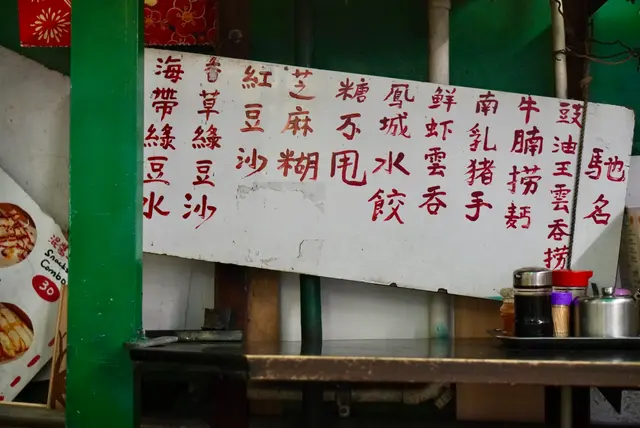 馳名
豉油王雲吞撈
牛腩撈麪
南乳猪手
鮮蝦雲吞
鳳城水餃
糖不甩
芝麻糊
紅豆沙
香草綠豆沙
海帶綠豆水
Snacks
Combo
30